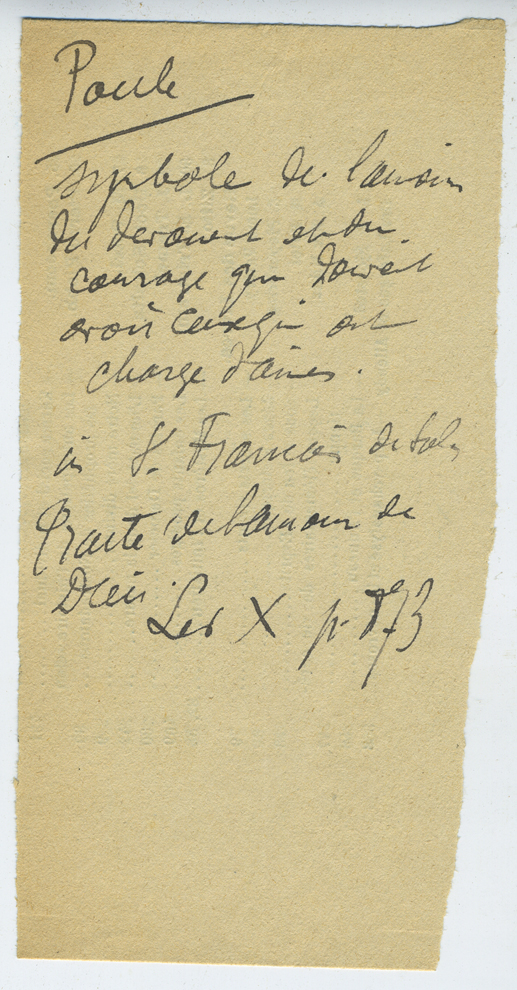 Poule
symbole de l'amour
du devouement et du
courage que doivent
avoir ceux qui ont
charge d'âmes.
in S. François de Sales
Traité de l'amour de
Dieu.
X p.